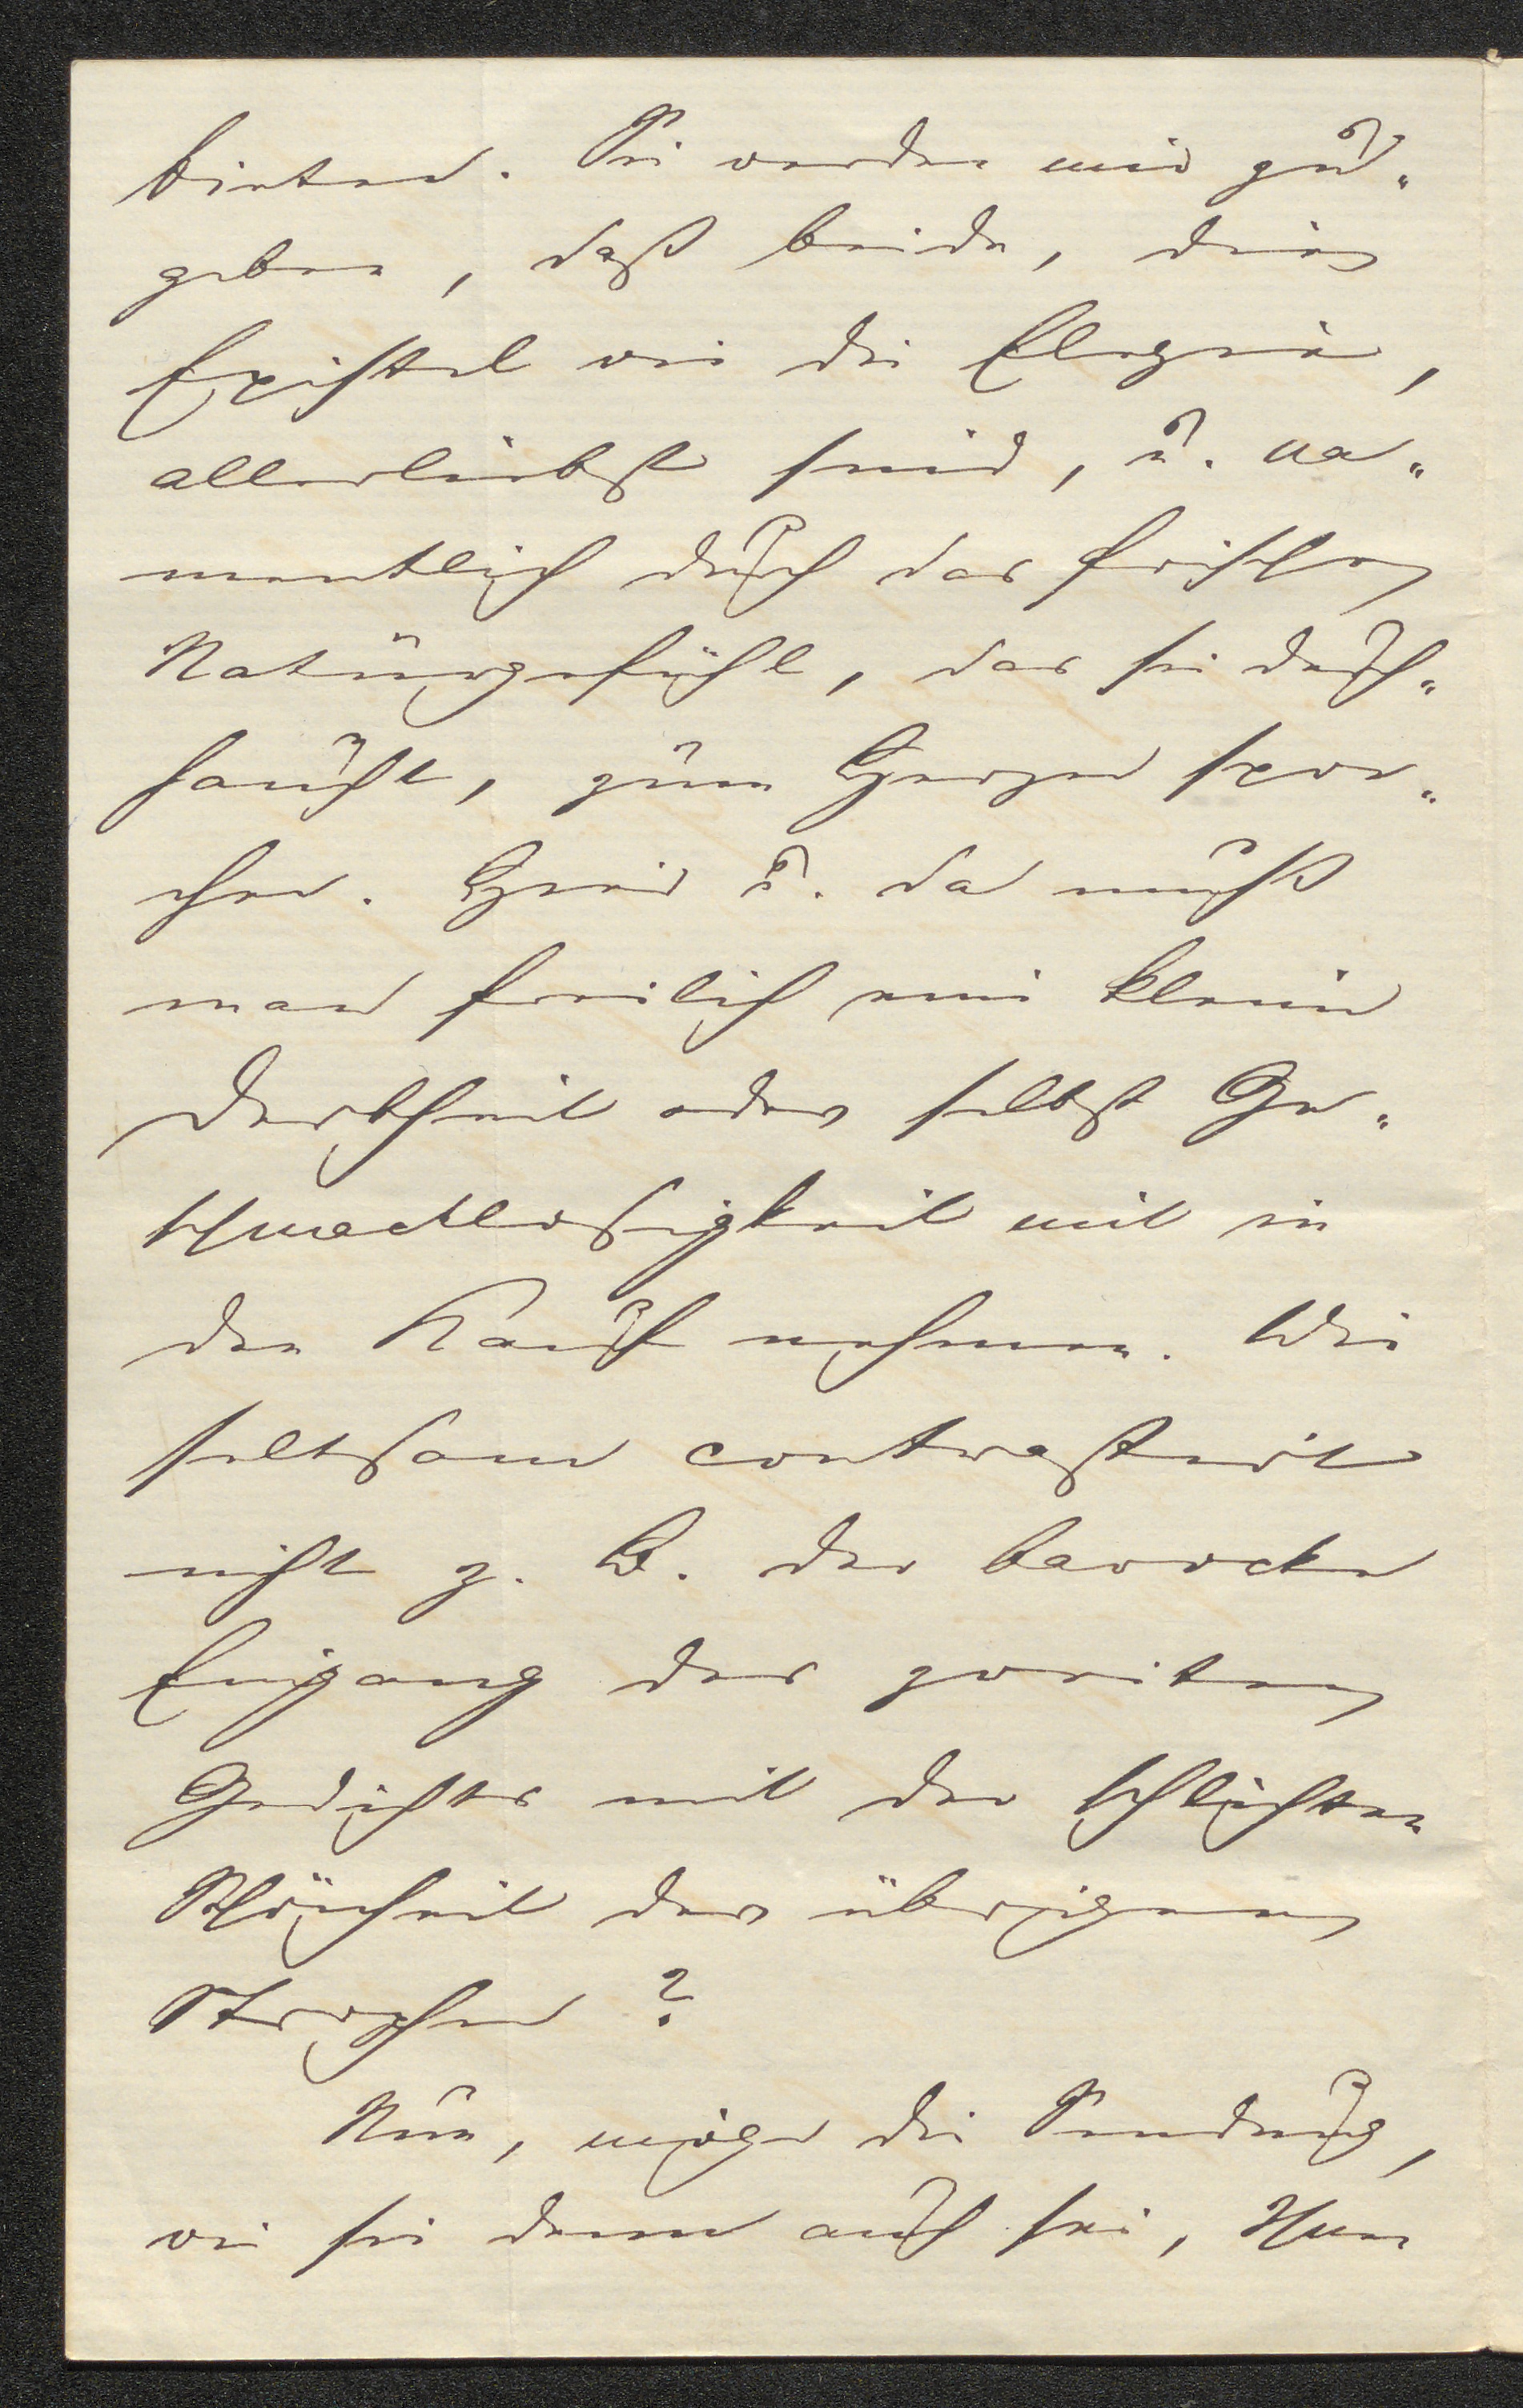 bieten. Sie werden mir zu-
geben, daß beide, diese
Epistel wie die Elegie,
allerliebst sind, u. na-
mentlich durch das frische
Naturgefühl, das sie durch-
haucht, zum Herzen spre-
chen. Hier u. da muß
man freilich eine kleine
Derbheit oder selbst Ge-
schmacklosigkeit mit in
den Kauf nehmen. Wie
seltsam contrastirt
nicht z. B. der barocke
Eingang des zweiten
Gedichts mit der schlichten
Schönheit der übrigen
Strophen?
Nun, möge die Sendung,
wie sie denn auch sei, Ihnen